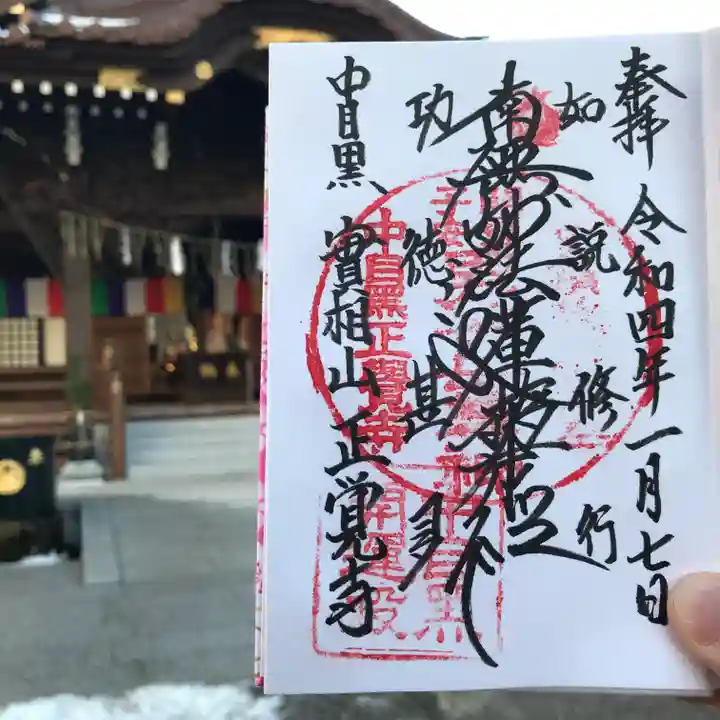 奉拝 令和四年一月七日
如説修行
南無妙法蓮華経
功徳甚多
中目黒 實相山 正覚寺
中目黒正覺寺
開運殿